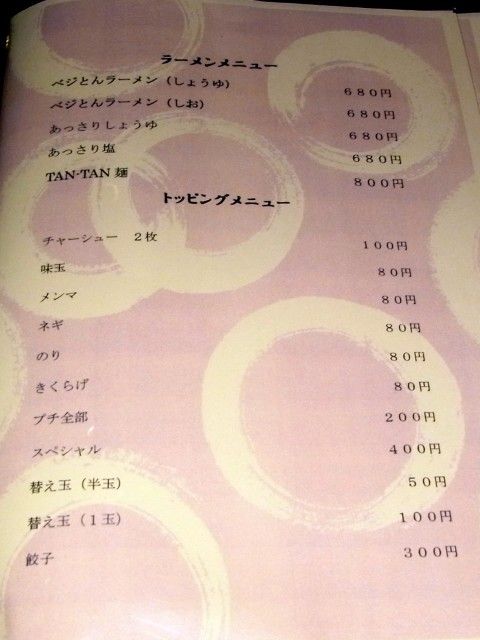 ラーメンメニュー
ベジとんラーメン（しょうゆ） 680円
ベジとんラーメン（しお） 680円
あっさりしょうゆ 680円
あっさり塩 680円
TAN-TAN 麺 800円
トッピングメニュー
チャーシュー 2枚 100円
味玉 80円
メンマ 80円
ネギ 80円
のり 80円
きくらげ 80円
プチ全部 200円
スペシャル 400円
替え玉（半玉） 50円
替え玉（1玉） 100円
餃子 300円